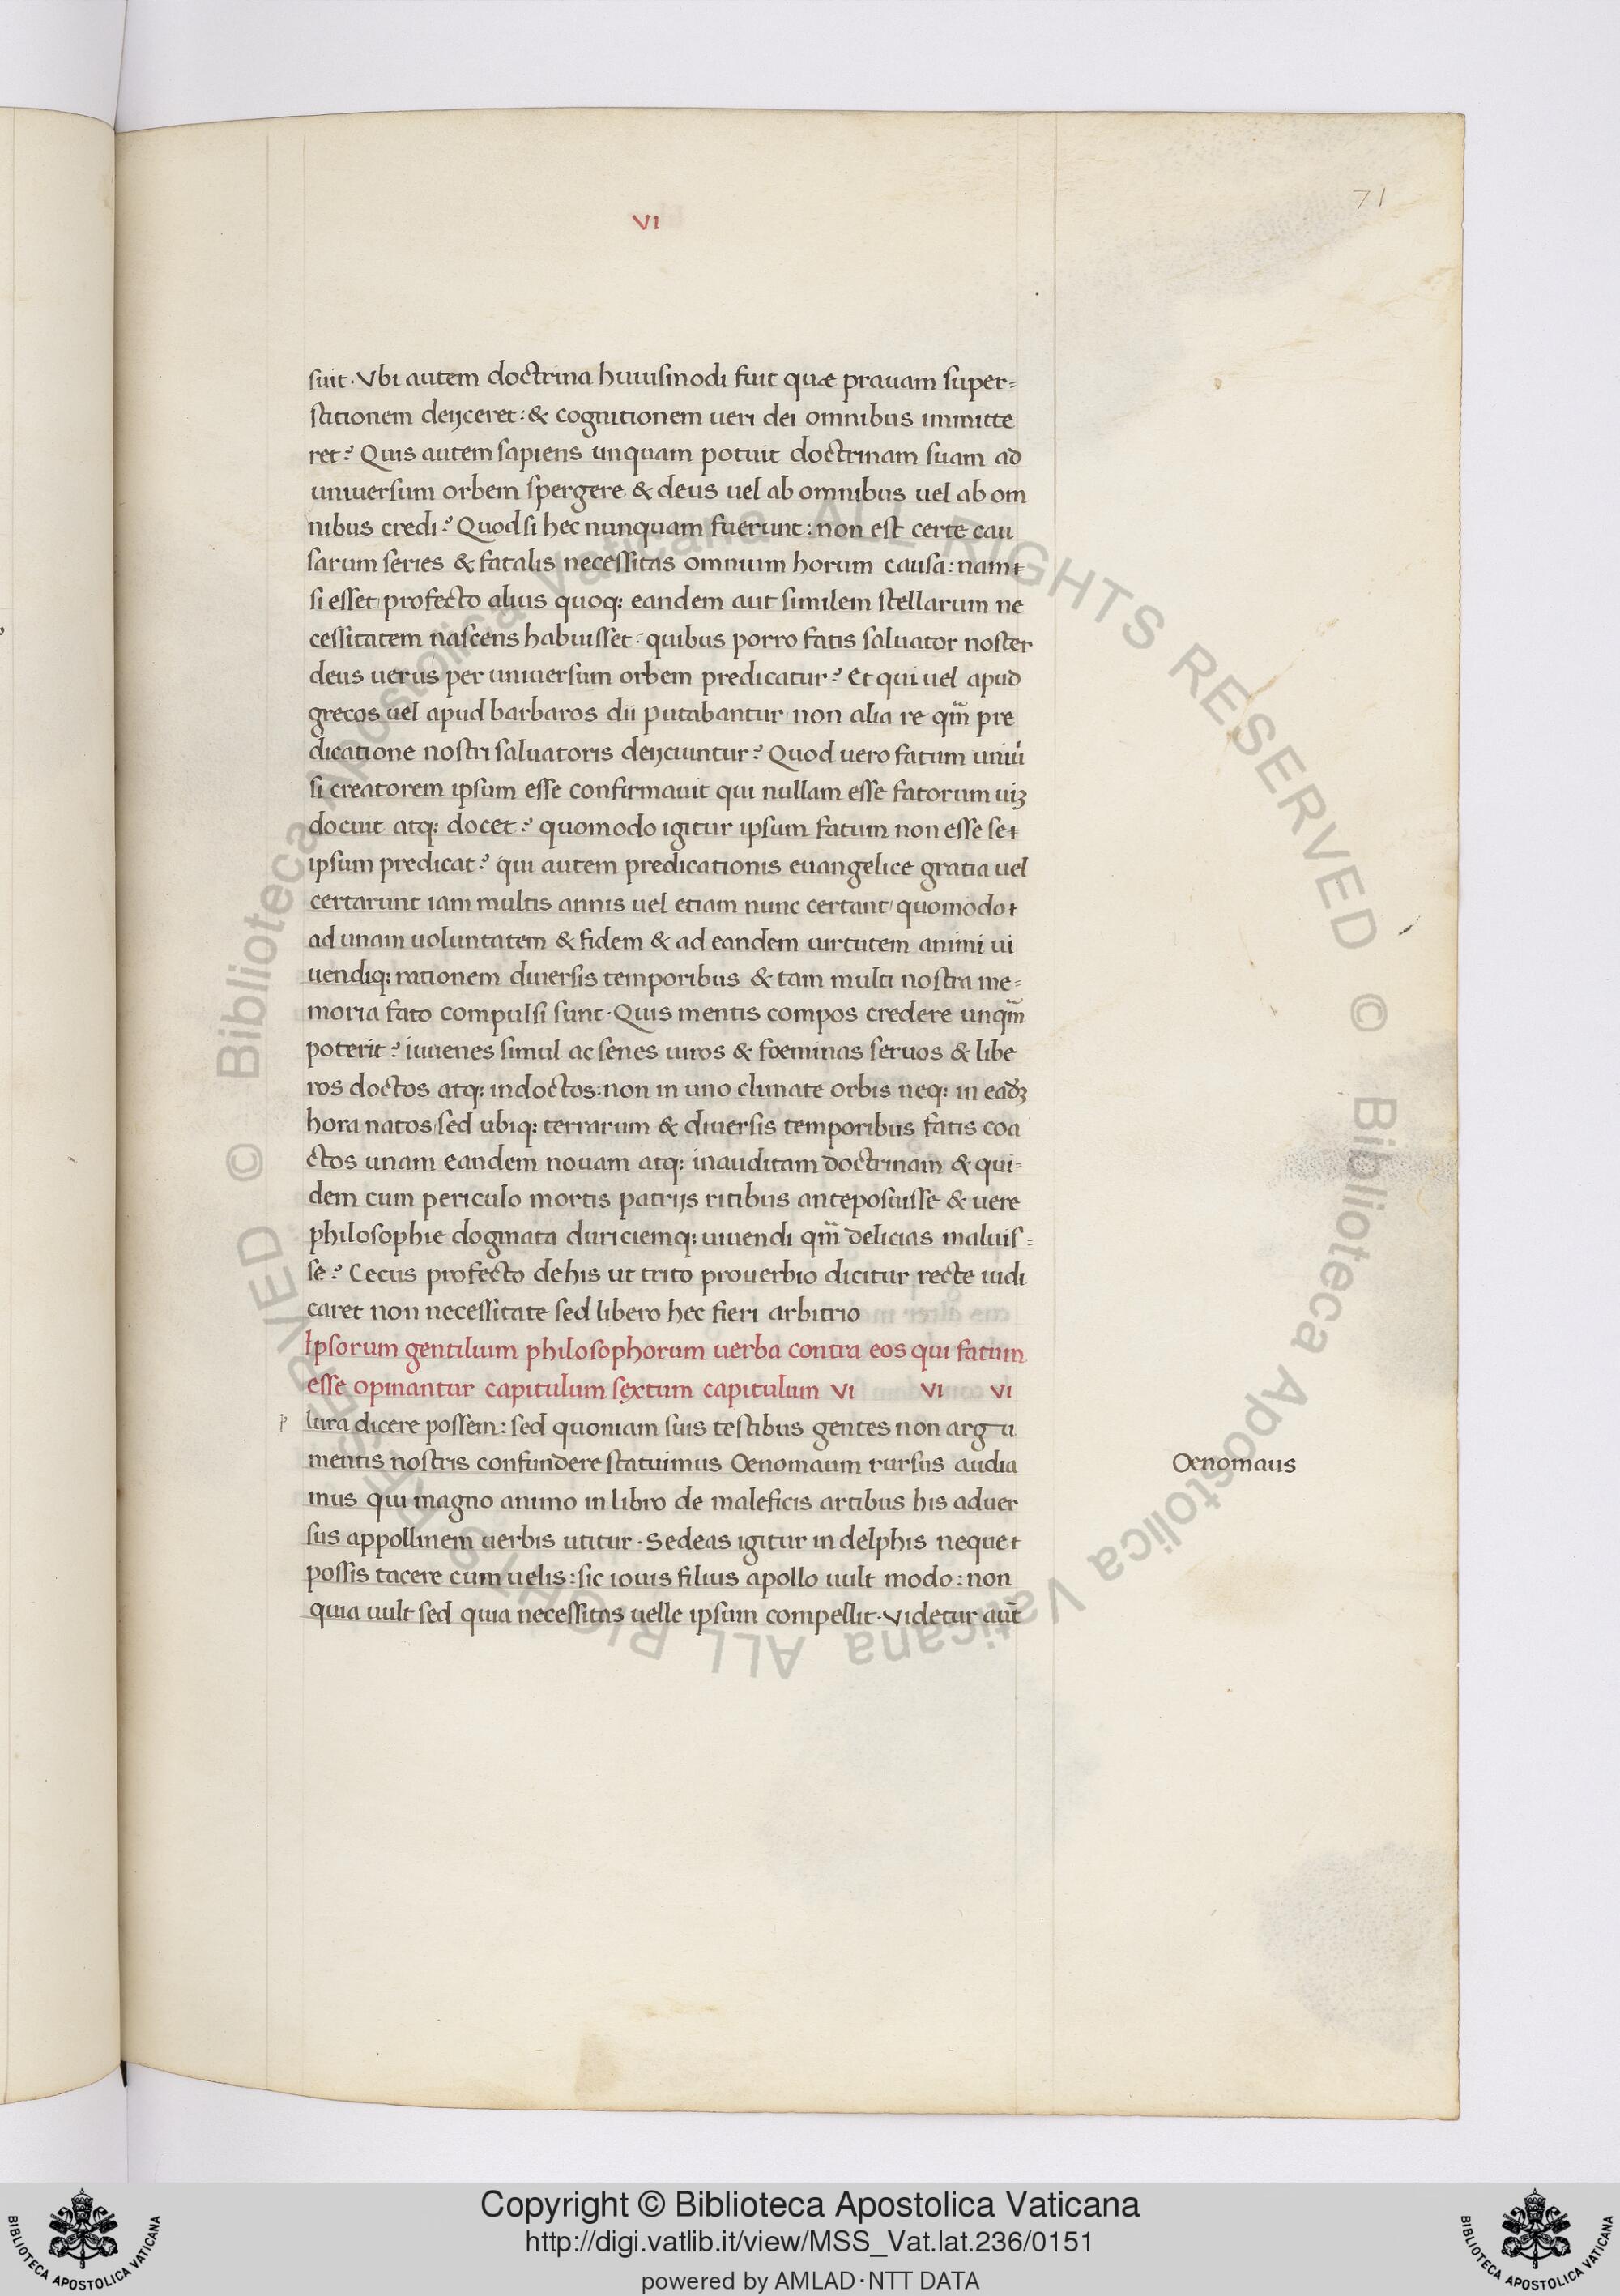 71
VI
suit. Vbi autem doctrina huiusmodi fuit quæ prauam super=
stitionem deijceret: & cognitionem ueri dei omnibus immitte
ret? Quis autem sapiens unquam potuit doctrinam suam ad
uniuersum orbem spergere & deus uel ab omnibus uel ab om
nibus credi? Quod si hec nunquam fuerunt: non est certe cau
sarum series & fatalis necessitas omnium horum causa: nam
si esset profecto alius quoq: eandem aut similem stellarum ne
cessitatem nascens habuisset: quibus porro fatis saluator noster
deus uerus per uniuersum orbem predicatur? Et qui uel apud
grecos uel apud barbaros dii putabantur non alia re qm̃ pre
dicatione nostri saluatoris deijciuntur? Quod uero fatum uniũ
si creatorem ipsum esse confirmauit qui nullam esse fatorum uiꝫ
docuit atq: docet? quomodo igitur ipsum fatum non esse se
ipsum predicat? qui autem predicationis euangelice gratia uel
certarunt iam multis annis uel etiam nunc certant quomodo
ad unam uoluntatem & fidem & ad eandem uirtutem animi ui
uendiq: rationem diuersis temporibus & tam multi nostra me=
moria fato compulsi sunt. Quis mentis compos credere unqm̃
poterit? iuuenes simul ac senes uiros & foeminas seruos & libe
ros doctos atq: indoctos: non in uno climate orbis neq: in eadꝫ
hora natos sed ubiq: terrarum & diuersis temporibus fatis coa
ctos unam eandem nouam atq: inauditam doctrinam & qui=
dem cum periculo mortis patrijs ritibus anteposuisse & uere
philosophie dogmata duriciemq: uiuendi qm̃ delicias maluis=
se? Cecus profecto de his ut trito prouerbio dicitur recte iudi
caret non necessitate sed libero hec fieri arbitrio
Ipsorum gentilium philosophorum uerba contra eos qui fatum
esse opinantur capitulum sextum capitulum VI VI VI
p lura dicere possem: sed quoniam suis testibus gentes non argu
mentis nostris confundere statuimus Oenomaum rursus audia
Oenomaus
mus qui magno animo in libro de maleficis artibus his aduer
sus appollinem uerbis utitur. Sedeas igitur in delphis neque
possis tacere cum uelis: sic iouis filius apollo uult modo: non
quia uult sed quia necessitas uelle ipsum compellit. Videtur aut̃
Copyright © Biblioteca Apostolica Vaticana
http://digi.vatlib.it/view/MSS_Vat.lat.236/0151
powered by AMLAD·NTT DATA
BIBLIOTECA APOSTOLICA VATICANA
BIBLIOTECA APOSTOLICA VATICANA
© Biblioteca Apostolica Vaticana ALL RIGHTS RESERVED © Biblioteca Apostolica Vaticana ALL RIGHTS RESERVED